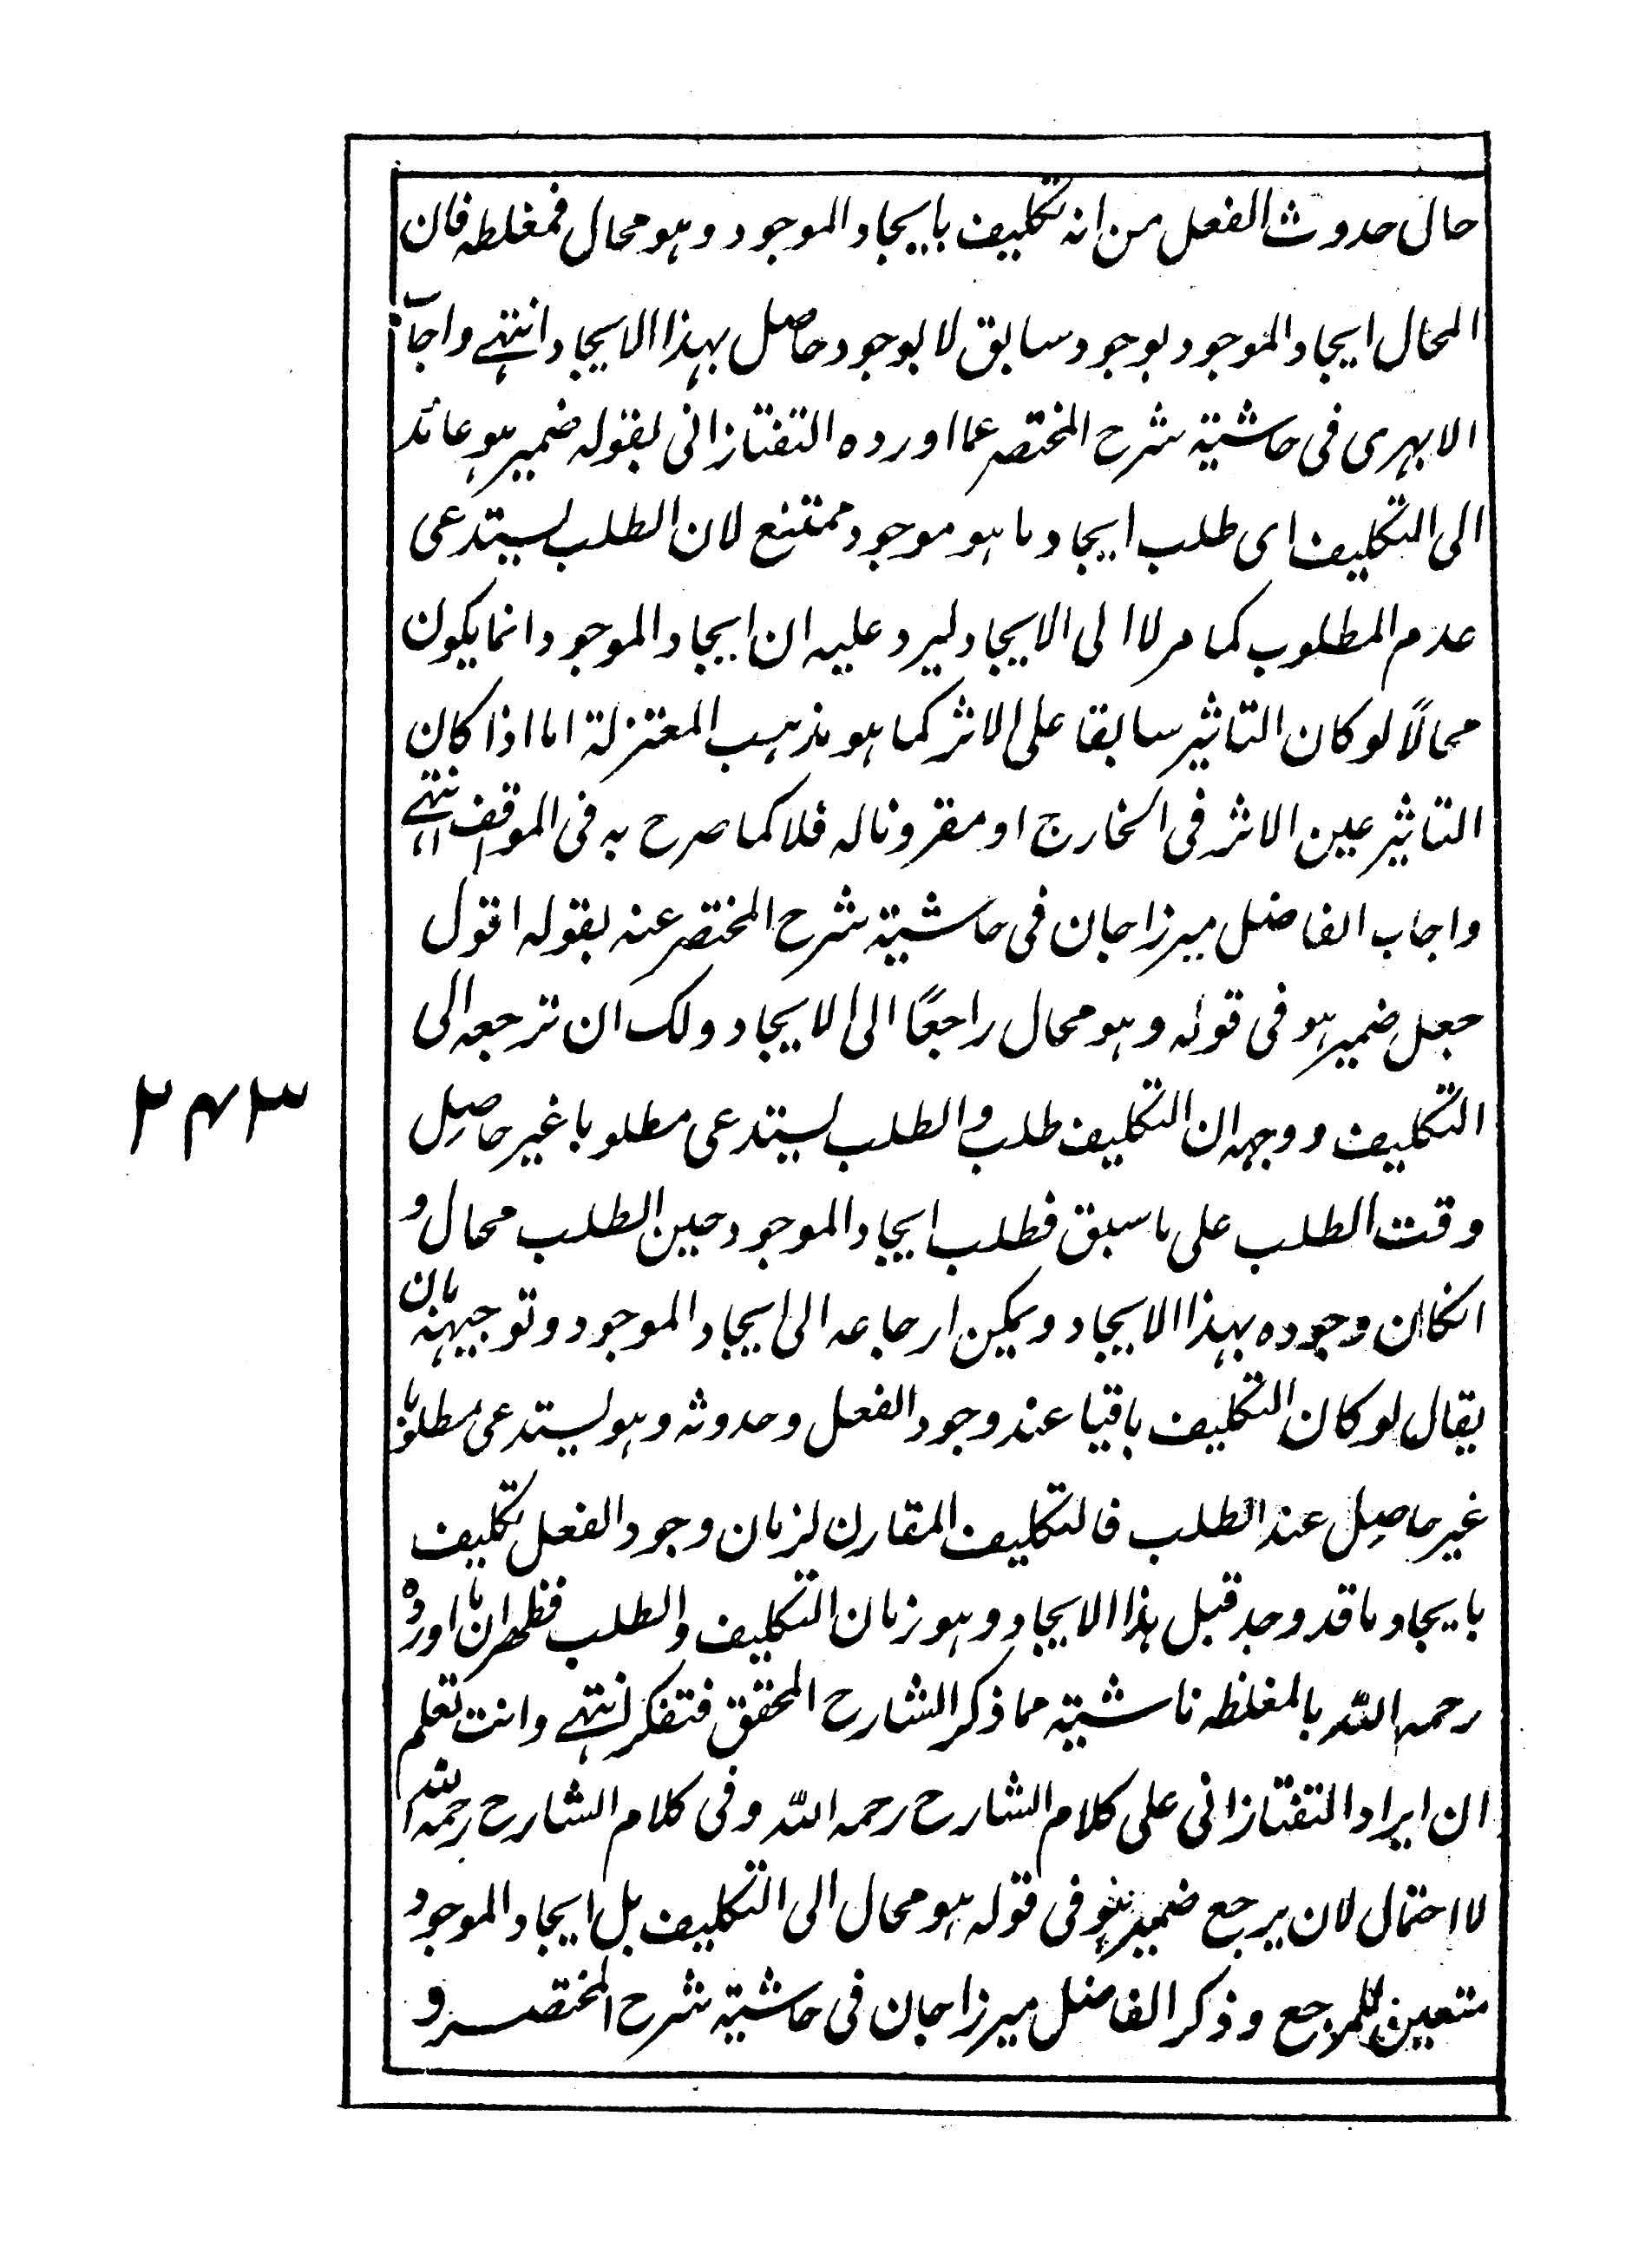 حال حدوث الفعل من انه تكليف بايجاد الموجود وهو محال فمغلطه فان
المحال ايجاد الموجود بوجود سابق لا بوجود حاصل بهذا الايجاد انتهى واجاب
الابهرى فى حاشية شرح المختصر عما اورده التفتازانى بقوله ضمير هو عائد
الى التكليف اى طلب ايجاد ما هو موجود ممتنع لان الطلب يستدعى
عدم المطلوب كما مر لا الى الايجاد ليرد عليه ان ايجاد الموجود انما يكون
محالاً لو كان التاثير سابقا على الاثر كما هو مذهب المعتزلة اما اذا كان
التاثير عين الاثر فى الخارج او مقرونا له فلا كما صرح به فى المواقف انتهى
واجاب الفاضل ميرزا جان فى حاشية شرح المختصر عنه بقوله اقول
جعل ضمير هو فى قوله وهو محال راجعًا الى الايجاد ولك ان ترجعه الى
التكليف ووجهه ان التكليف طلب والطلب يستدعى مطلوبا غير حاصل
وقت الطلب على ما سبق فطلب ايجاد الموجود حين الطلب محال و
انكان وجوده بهذا الايجاد ويمكن ارجاعه الى ايجاد الموجود وتوجيهه بان
يقال لو كان التكليف باقيا عند وجود الفعل وحدوثه وهو يستدعى مطلوبا
غير حاصل عند الطلب فالتكليف المقارن لزمان وجود الفعل تكليف
بايجاد ما قد وجد قبل هذا الايجاد وهو زمان التكليف والطلب فظهر ان ما اورده
رحمه الله بالمغلطه ناشية مما ذكر الشارح المحقق فتفكر انتهى وانت تعلم
ان ايراد التفتازانى على كلام الشارح رحمه الله وفى كلام الشارح رحمه الله
لا احتمال لان يرجع ضمير هو فى قوله هو محال الى التكليف بل ايجاد الموجود
متعين للمرجع وذكر الفاضل ميرزا جان فى حاشية شرح المختصر و
۲۴۳